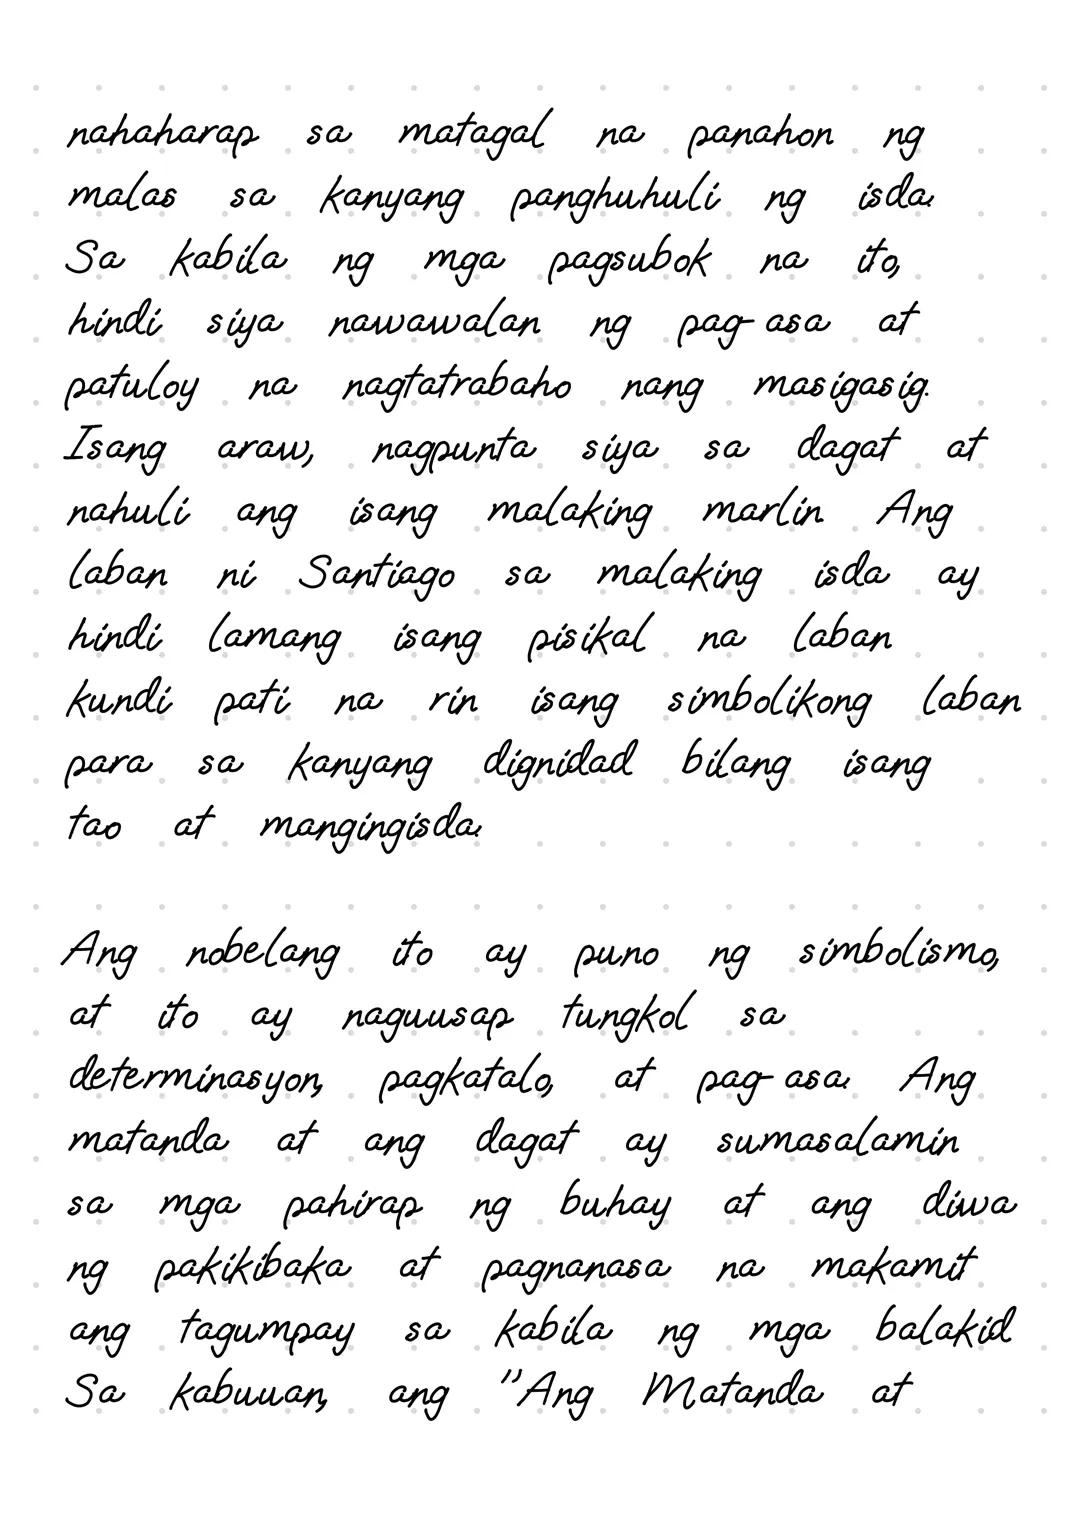 nahaharap sa matagal na panahon ng
malas sa kanyang panghuhuli ng isda.
Sa kabila ng mga pagsubok na ito,
hindi siya nawawalan ng pag-asa at
patuloy na nagtatrabaho nang masigasig.
Isang araw, nagpunta siya sa dagat at
nahuli ang isang malaking marlin. Ang
laban ni Santiago sa malaking isda ay
hindi lamang isang pisikal na laban
kundi pati na rin isang simbolikong laban
para sa kanyang dignidad bilang isang
tao at mangingisda.
Ang nobelang ito ay puno ng simbolismo,
at ito ay naguusap tungkol sa
determinasyon, pagkatalo, at pag-asa. Ang
matanda at ang dagat ay sumasalamin
sa mga pahirap ng buhay at ang diwa
ng pakikibaka at pagnanasa na makamit
ang tagumpay sa kabila ng mga balakid.
Sa kabuuan, ang "Ang Matanda at